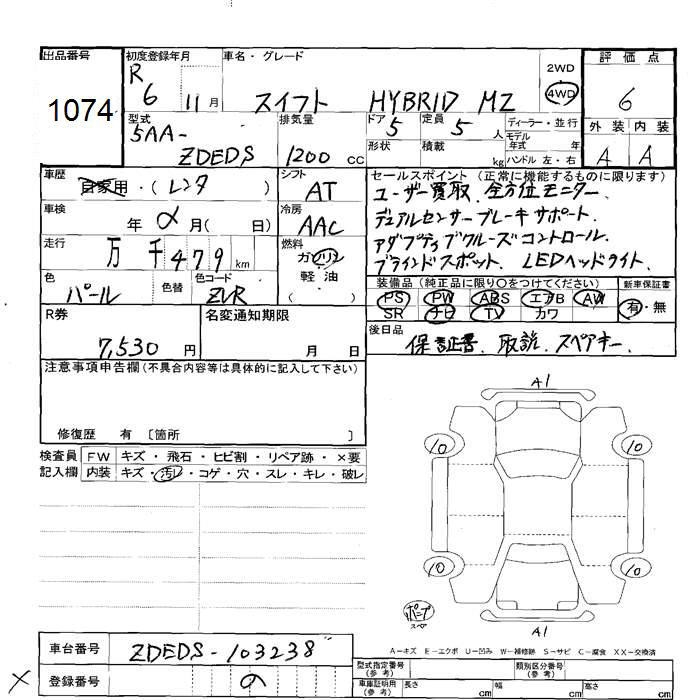 出品番号
1074
初度登録年月
R 6 11月
車名・グレード
スイフト HYBRID MZ
2WD
4WD
評価点
6
型式
5AA-
ZDEDS
排気量
1200 cc
ドア 5
定員 5 人
ディーラー・並行
モデル年式 年
形状
積載 kg
ハンドル 左・右
外装 内装
A A
車歴
自家用・(レンタ )
シフト
AT
セールスポイント (正常に機能するものに限ります)
ユーザー買取. 全方位モニター.
デュアルセンサーブレーキサポート.
アダプティブクルーズコントロール.
ブラインドスポット. LEDヘッドライト.
車検
年 月( 日)
冷房
AAC
走行
万 千479km
燃料
ガソリン
軽油
( )
色
パール
色替
色コード
ZVR
装備品 (純正品に限り○をつけてください)
PS PW ABS エアB AW
SR ナビ TV カワ
新車保証書
有・無
R券
7,530 円
名変通知期限
月 日
後日品
保証書. 取説. スペアキー.
注意事項申告欄(不具合内容等は具体的に記入して下さい)
修復歴 有 〔箇所 〕
検査員
記入欄
FW キズ・飛石・ヒビ割・リペア跡・×要
内装 キズ・汚レ・コゲ・穴・スレ・キレ・破レ
A1
10 10
10 10
A1
A-キズ E-エクボ U-凹み W-補修跡 S-サビ C-腐食 XX-交換済
車台番号
ZDEDS-103238
登録番号
の
×
型式指定番号
(参考)
類別区分番号
(参考)
車庫証明用
(参考)
長さ cm 幅 cm 高さ cm